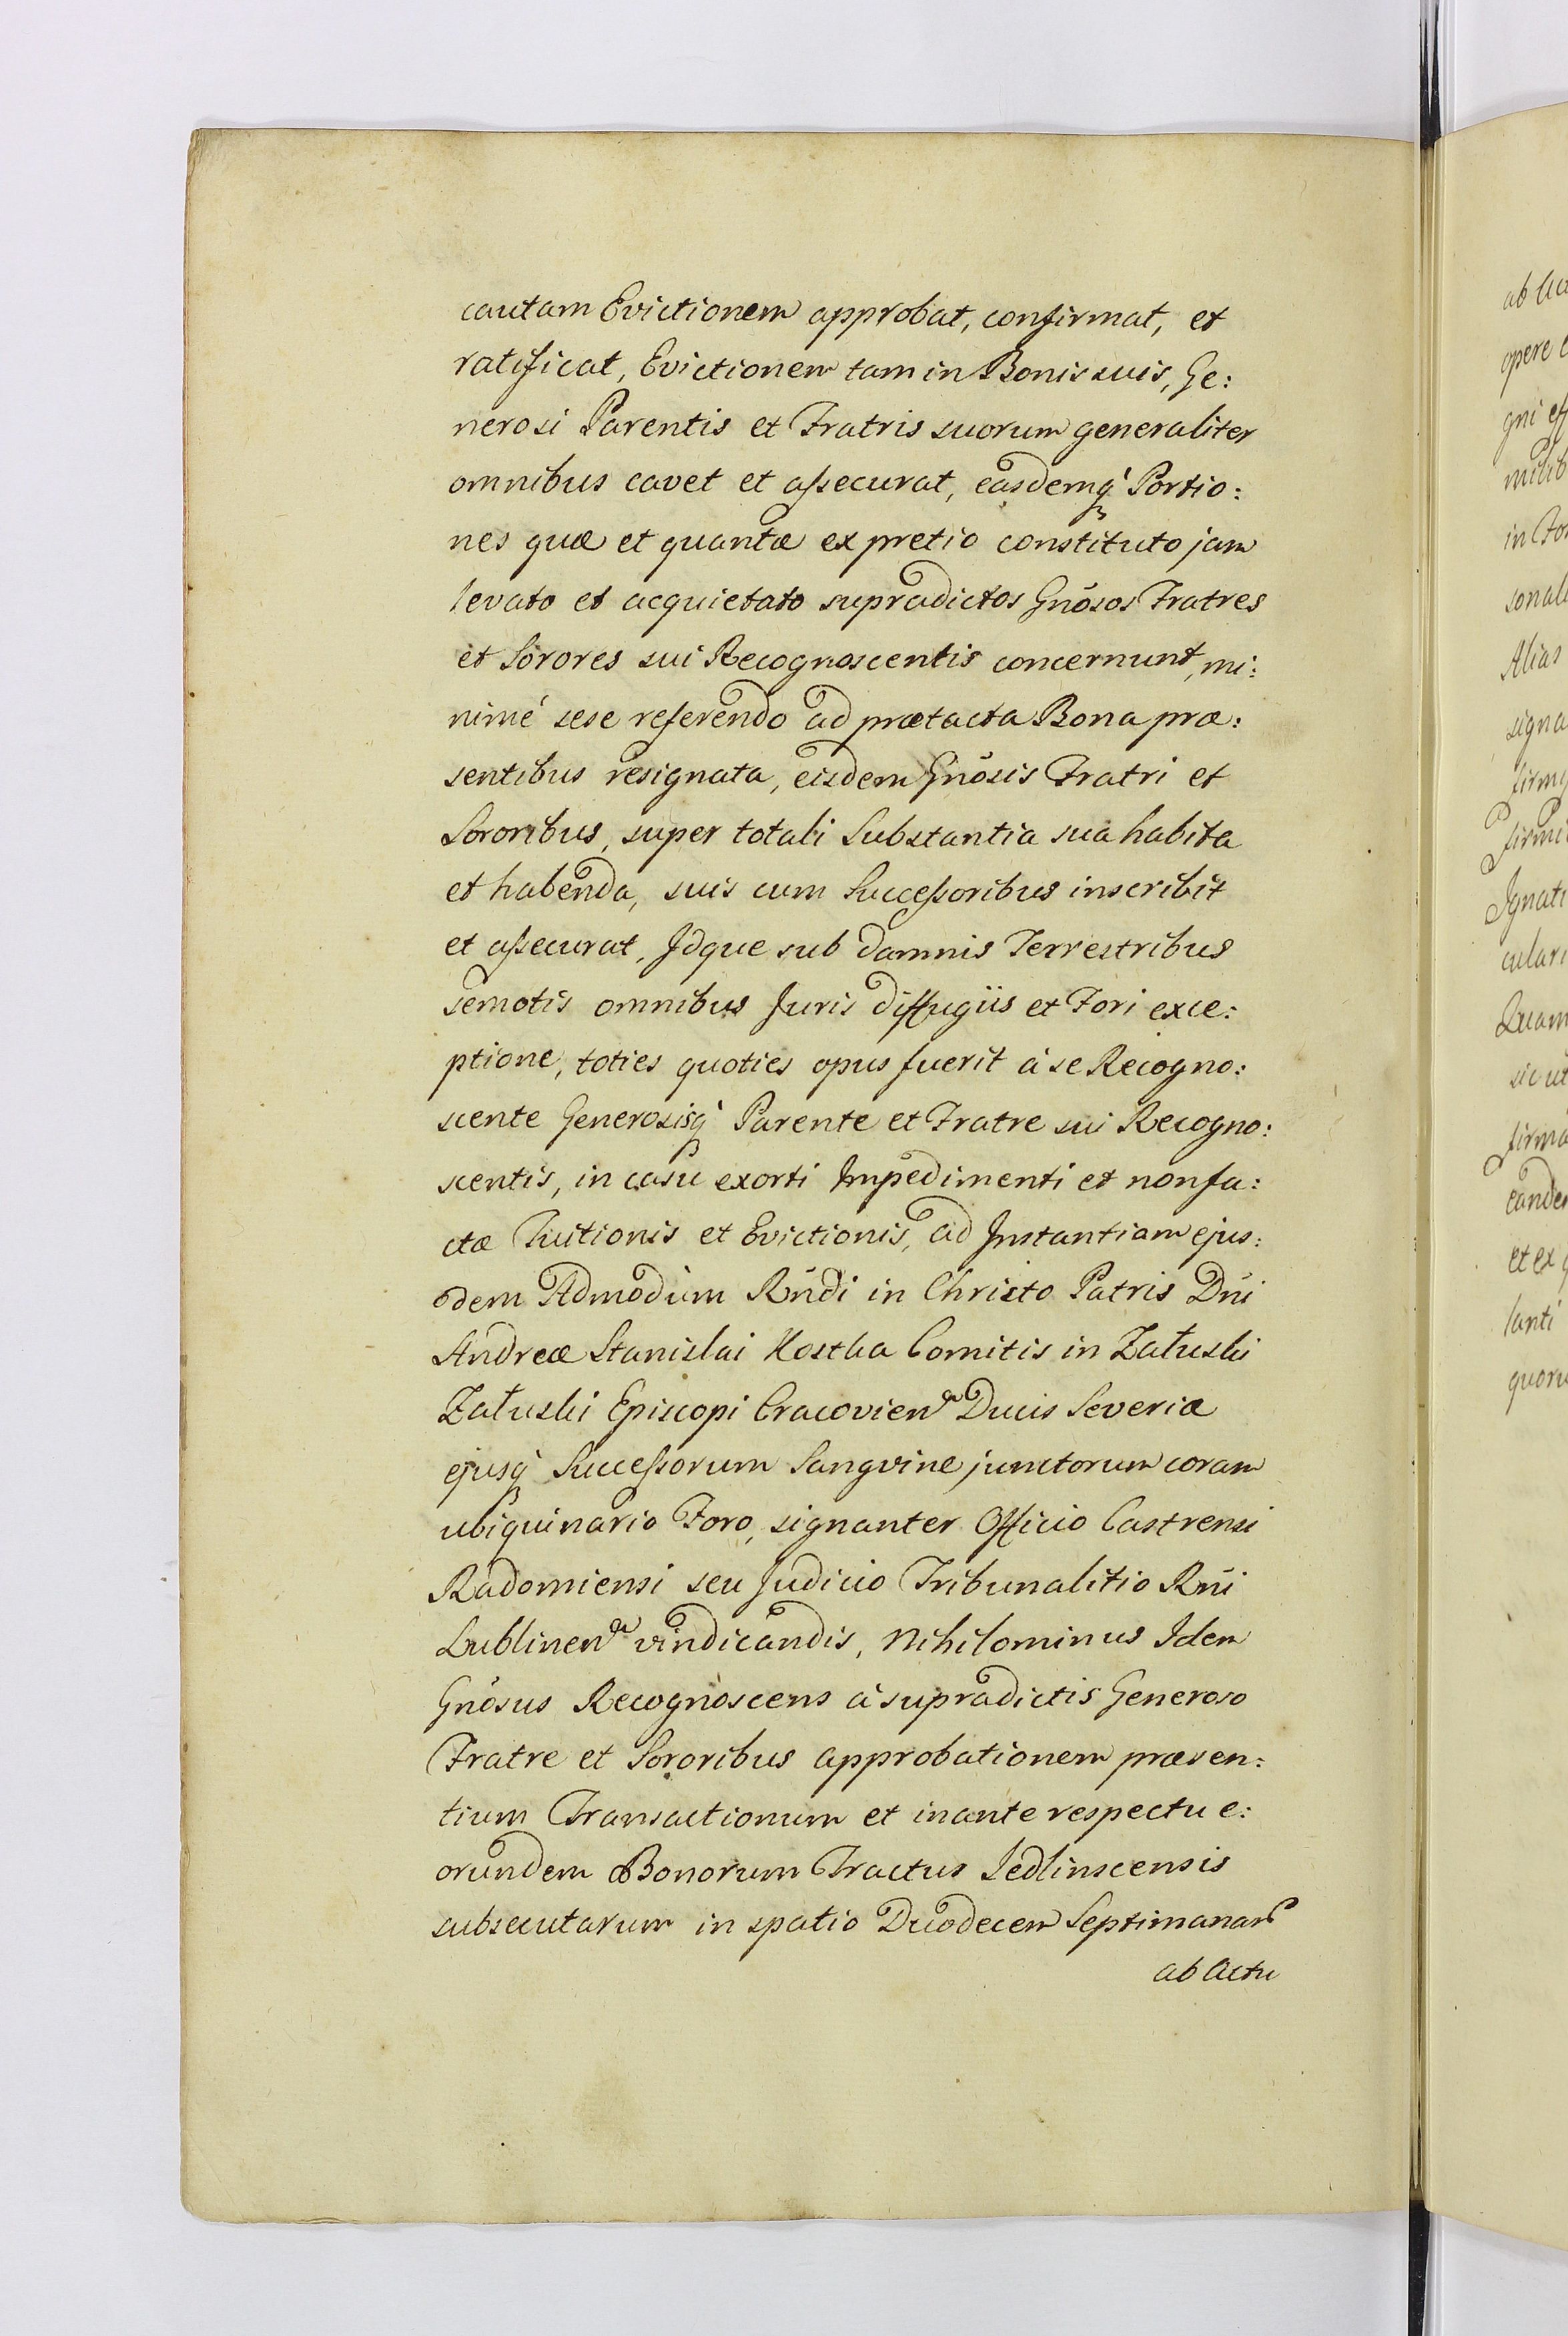 cautam Evictionem approbat, confirmat, et
ratificat, Evictionem tam in Bonis suis, Ge:
nerosi Parentis et Fratris suorum generaliter
omnibus cavet et aſsecurat, easdemq́ Portio:
nes quæ et quantæ ex pretio constituto jam
levato et acquietato supradictos Gnõsos Fratres
et Sorores sui Recognoscentis concernunt, mi:
nimé sese referendo ad prætacta Bona præ:
sentibus resignata, eisdem Gnõsis Fratri et
Sororibus, super totali Substantia sua habita
et habenda, suis cum Succeſsoribus inscribit
et aſsecurat, Idque sub damnis Terrestribus
semotis omnibus Juris diffugiis et Fori exce:
ptione, toties quoties opus fuerit à se Recogno:
scente Generosisq́ Parente et Fratre sui Recogno:
scentis, in casu exorti Impedimenti et non fa:
ctæ Tuitionis et Evictionis, ad Instantiam ejus:
dem Admodum Rńdi in Christo Patris Dńi
Andreæ Stanislai Kostka Comitis in Załuski
Załuski Episcopi Cracovien Ducis Severiæ
ejusq́ Succeſsorum Sangvine junctorum coram
ubiquinario Foro, signanter Officio Castrensi
Radomiensi seu Judicio Tribunalitio Rńi
Lublinen vindicandis, Nihilominus Idem
Gnõsus Recognoscens à supradictis Generoso
Fratre et Sororibus approbationem præsen:
tium Transactionum et inante respectu e:
orundem Bonorum Tractus Jedlinscensis
subsecutarum in spatio Duodecem Septimanar̃
ab Actu
ab Ac
opere
gni eff
in For
sonal
Alias
signa
Ignati
culari
Quam
sic ut
firma
et ex
lanti
quoru